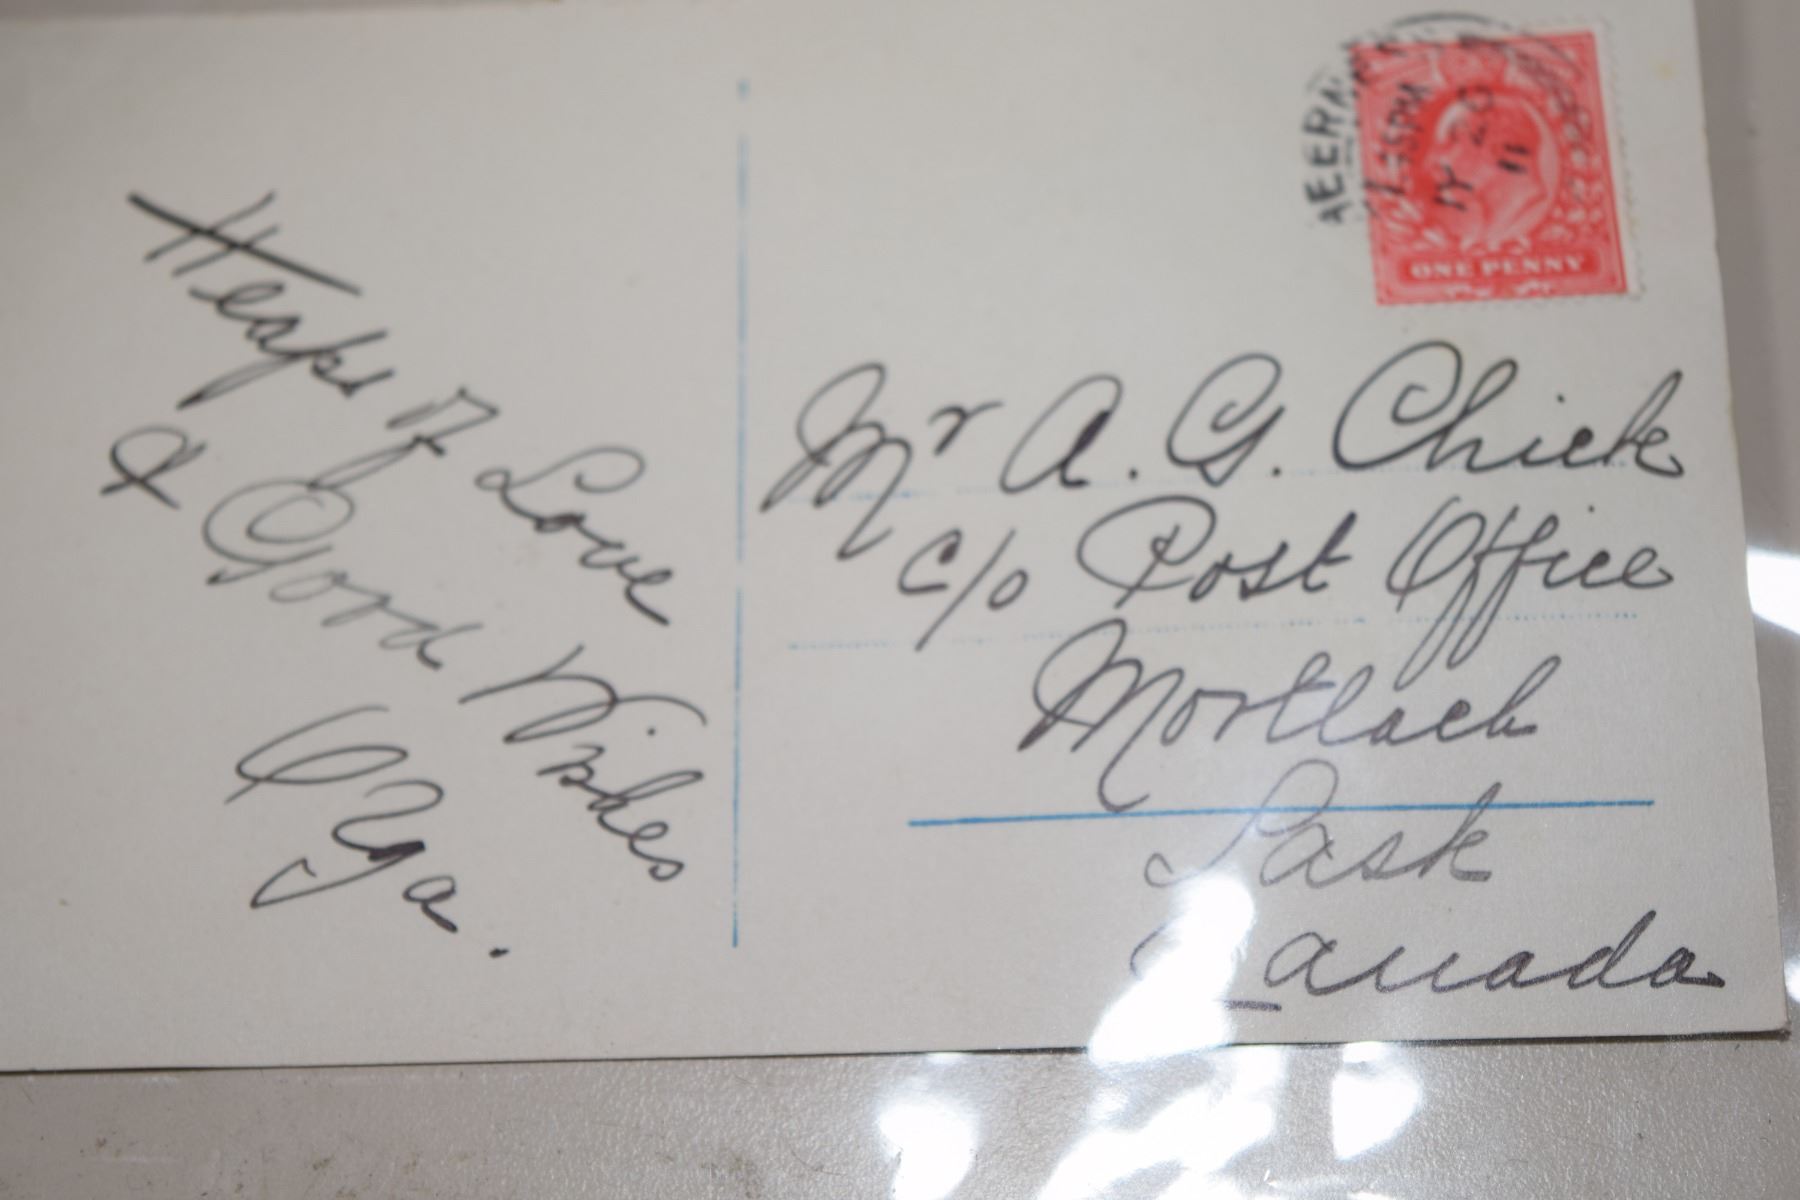 Heaps of Love
& Good Wishes
Olga.
ONE PENNY
Mr A. G. Chick
c/o Post Office
Mortlach
Sask
Canada